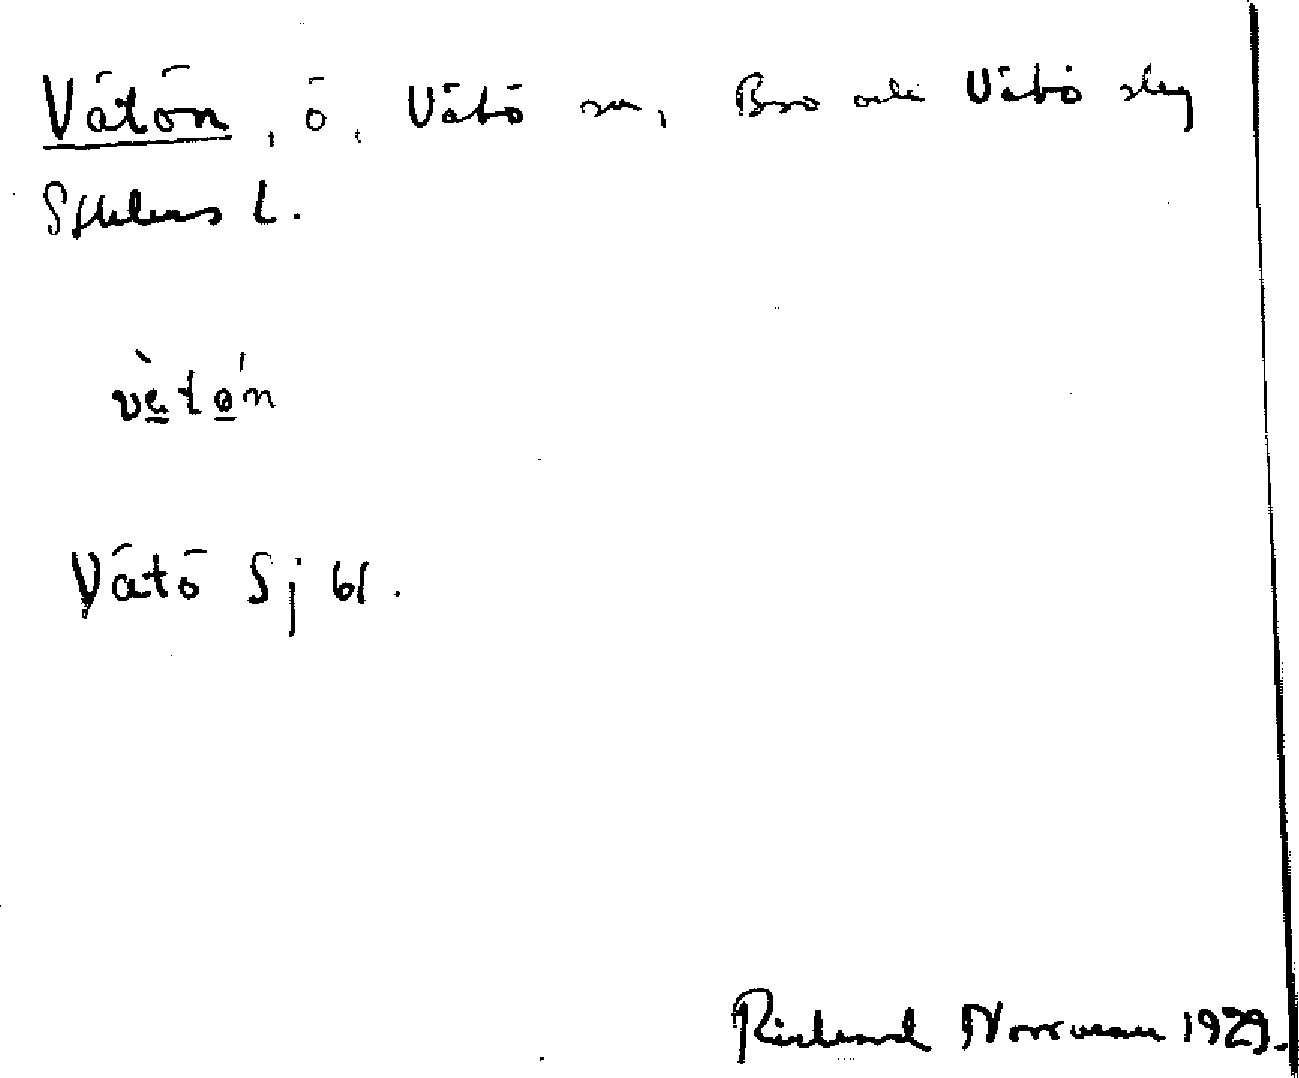 Vätön, ö, Vätö sn, Bro och Vätö skg
Sthlms L.
vètǿn
Vätö Sj 61.
Richard Norrman 1929.